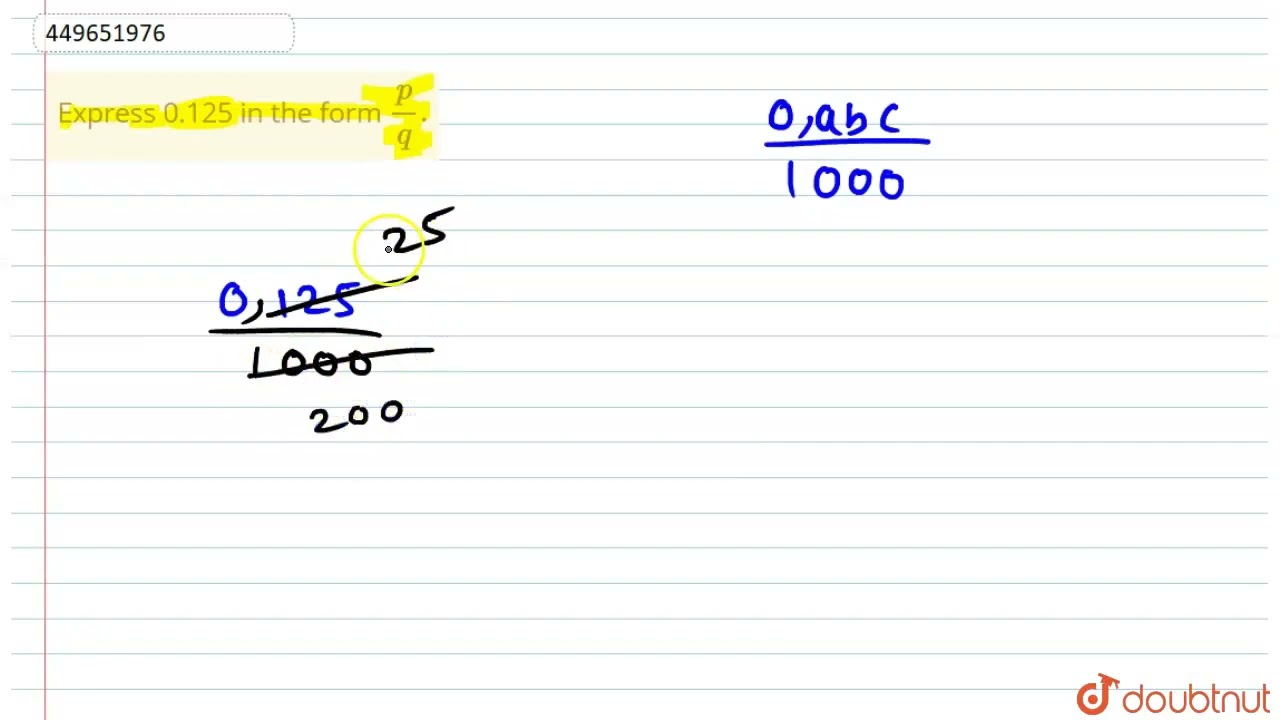 449651976
Express 0.125 in the form p/q.
0,abc
1000
25
0,125
1000
200
doubtnut